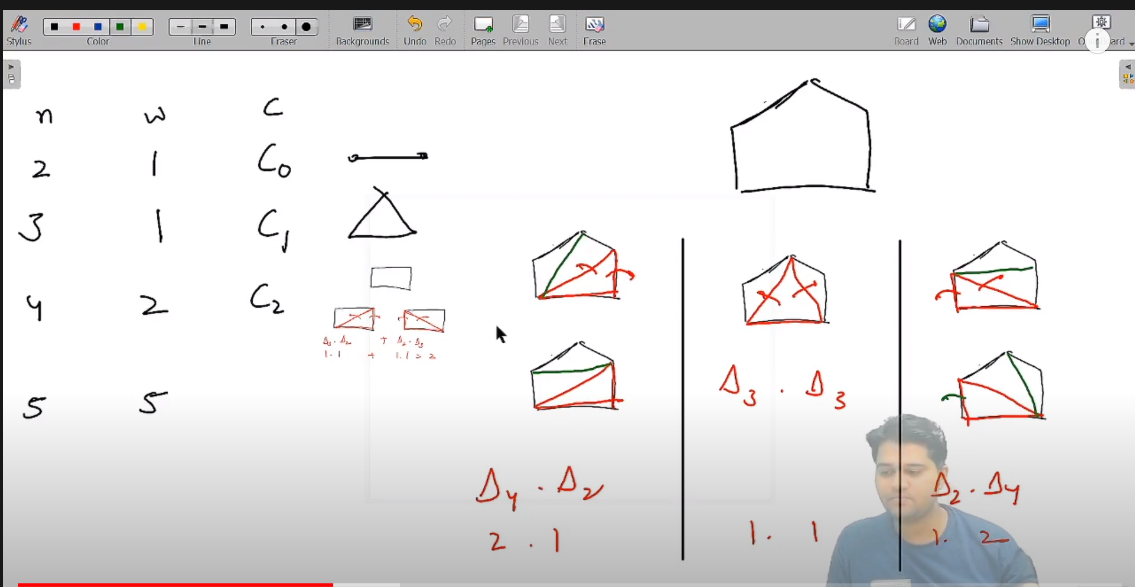 Stylus Color Line Eraser Backgrounds Undo Redo Pages Previous Next Erase Board Web Documents Show Desktop
n w C
2 1 C0
3 1 C1
4 2 C2
Δ3 . Δ2 + Δ2 . Δ3
1 . 1 + 1 . 1 = 2
5 5
Δ3 . Δ3
Δ4 . Δ2
2 . 1
1 . 1
Δ2 . Δ4
1 . 2